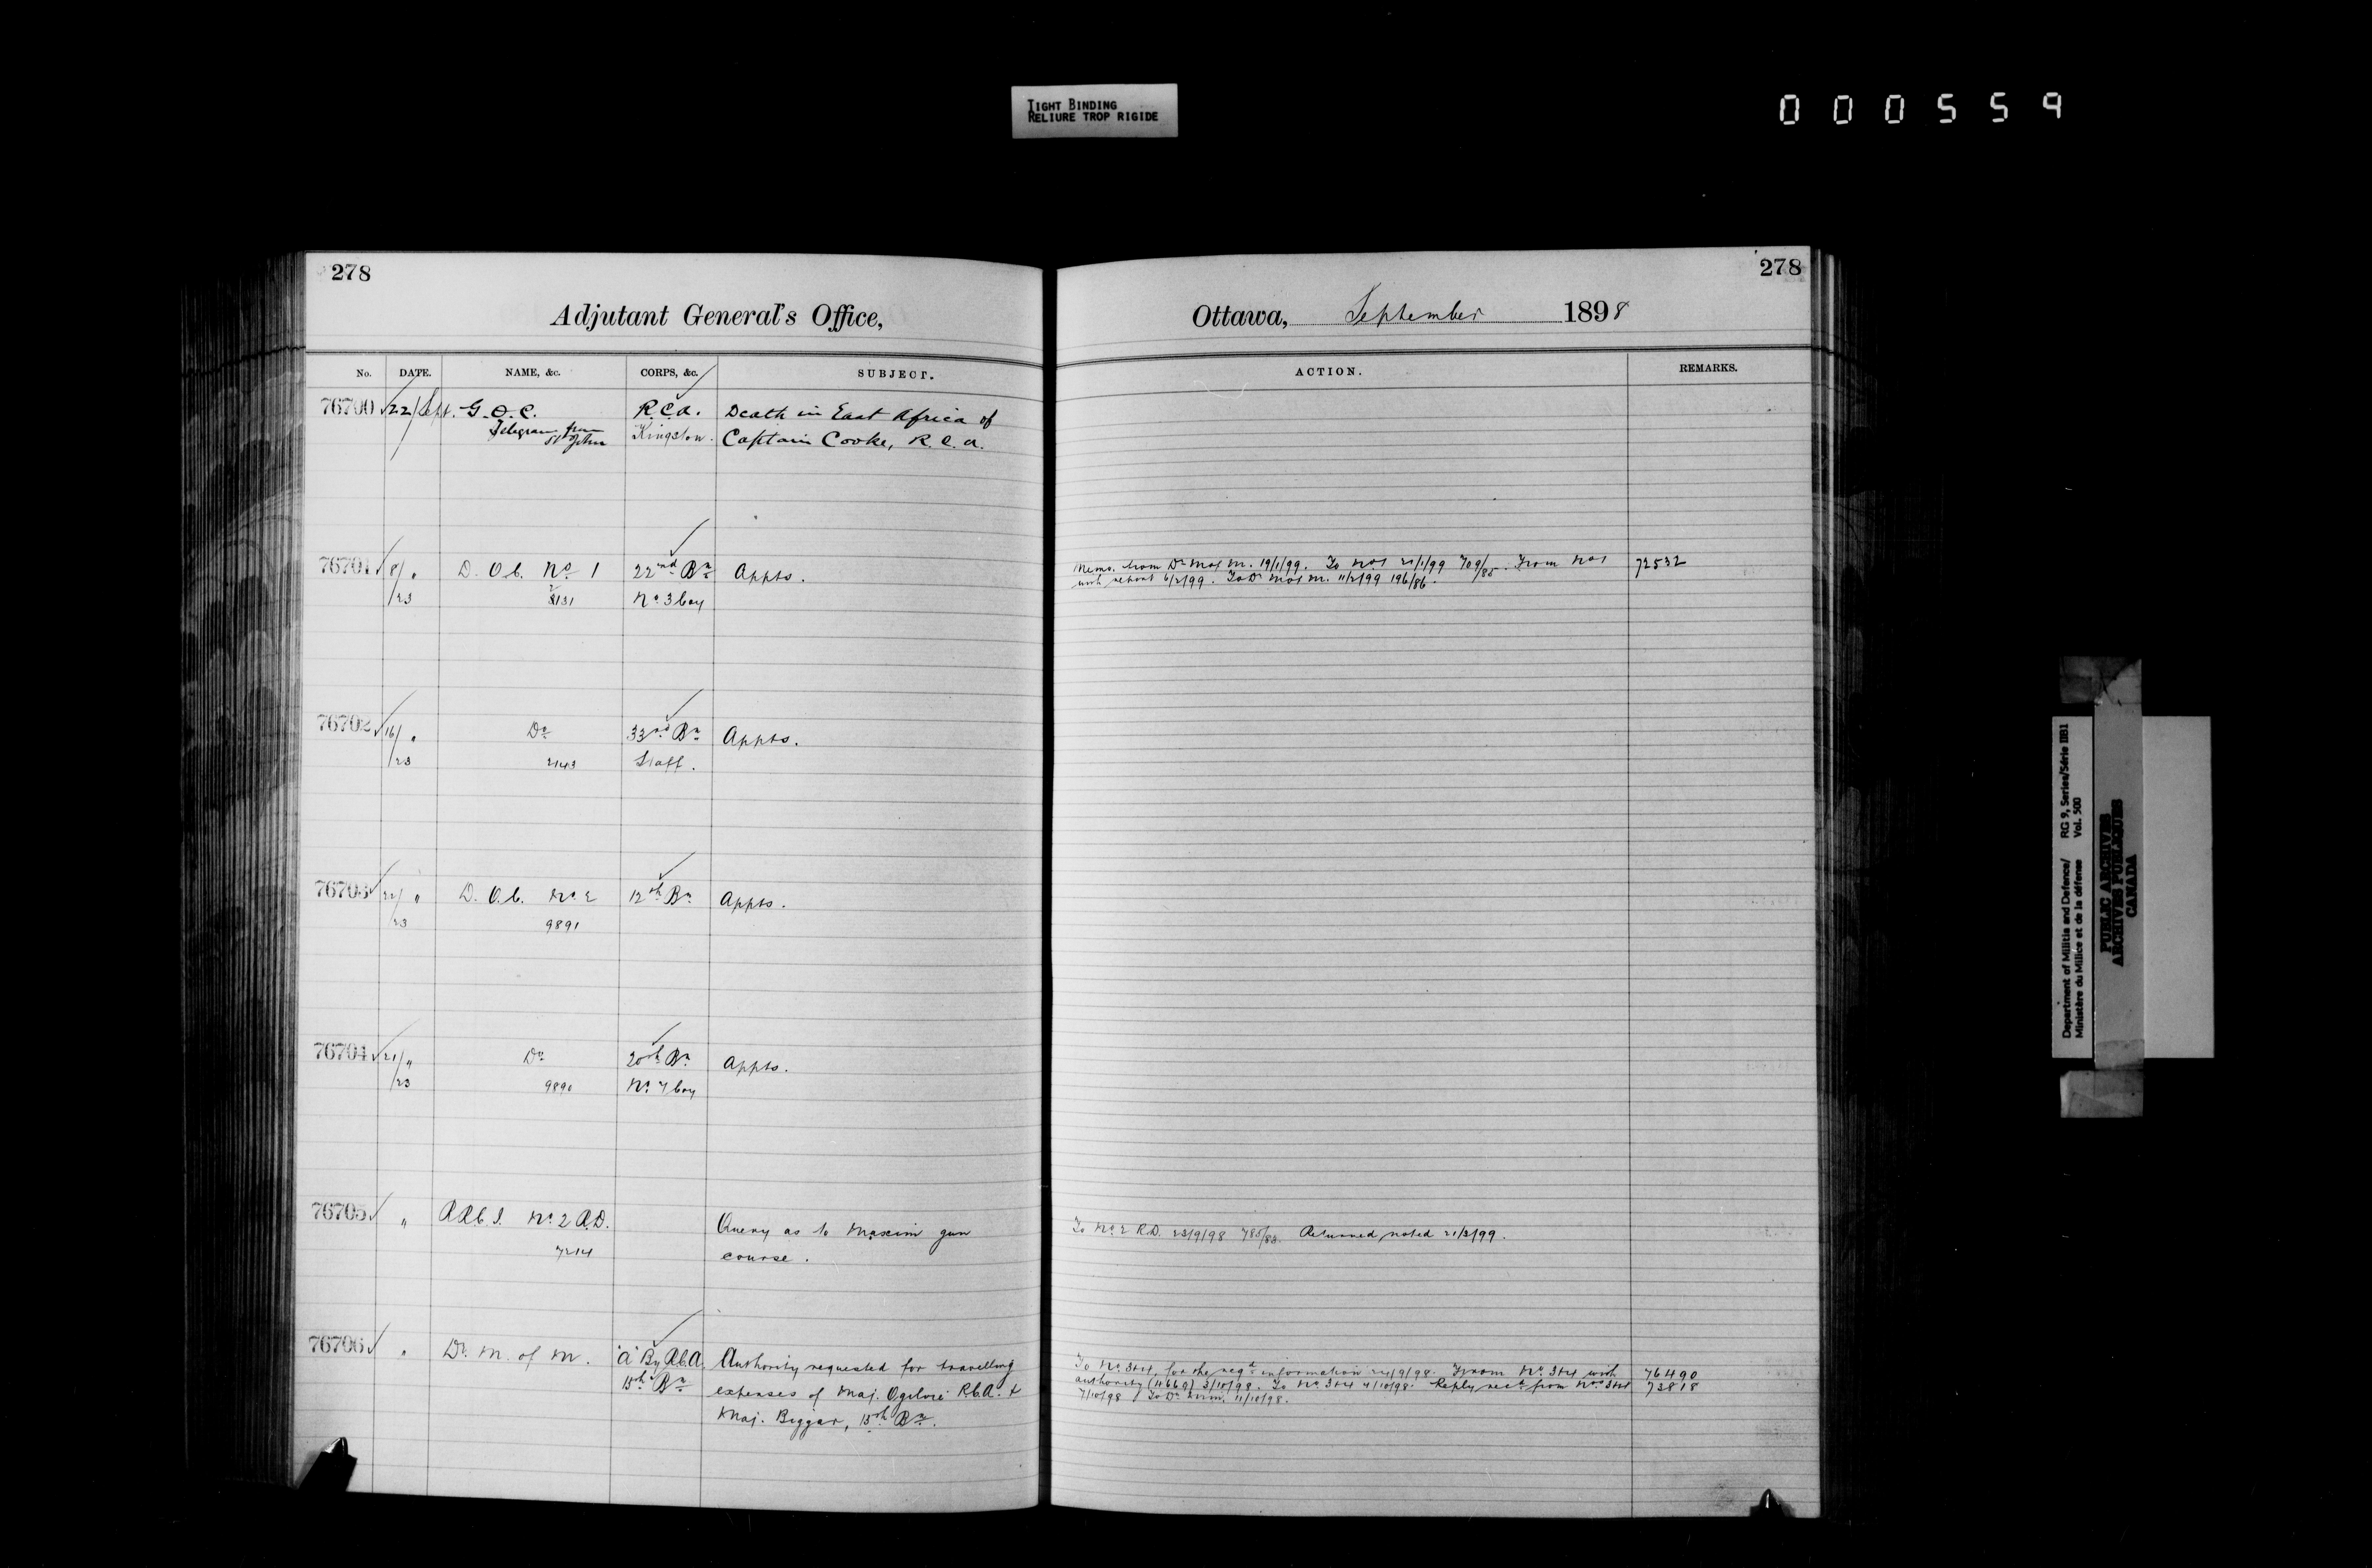 TIGHT BINDING
RELIURE TROP RIGIDE
000559
278
Adjutant General's Office,
No. DATE. NAME, &c. CORPS, &c. SUBJECT.
76700 22/Sept. G.O.C. R.C.A. Death in East Africa of
Telegram from St John Kingston. Captain Cooke, R.C.A.
76701 8/ " D.O.C. No 1 22nd Bn Appts.
/23 3131 No 3 Coy
76702 16/ " Do 33rd Bn Appts.
/23 2143 Staff.
76703 22/ " D.O.C. No 2 12th Bn Appts.
/23 9891
76704 21/ " Do 20th Bn Appts.
/23 9890 No 7 Coy
76705 " No 2 R.D. Query as to Maxim gun
7214 course.
76706 " Dr. M. of M. "A" By R.C.A. Authority requested for travelling
15th Bn expenses of Maj. Ogilvie R.C.A. &
Maj. Biggar, 15th Bn.
278
Ottawa, September 1898
ACTION. REMARKS.
Memo. from D. M of M. 19/1/99. To No 1 21/1/99 709/85. From No 1 72532
with report 6/2/99. To D. M of M. 11/2/99 196/86.
To No 2 R.D. 23/9/98 785/83. Returned, noted 21/3/99.
To No 3 & 4, for the reqd information 24/9/98. From No 3 & 4 with 76490
authority (11669) 3/10/98. To No 3 & 4 4/10/98. Reply recd from No 3 & 4 73818
7/10/98 To D. 11/10/98.
Department of Militia and Defence/ RG 9, Series/Série IIB1
Ministère du Milice et de la défense Vol. 500
PUBLIC ARCHIVES
ARCHIVES PUBLIQUES
CANADA